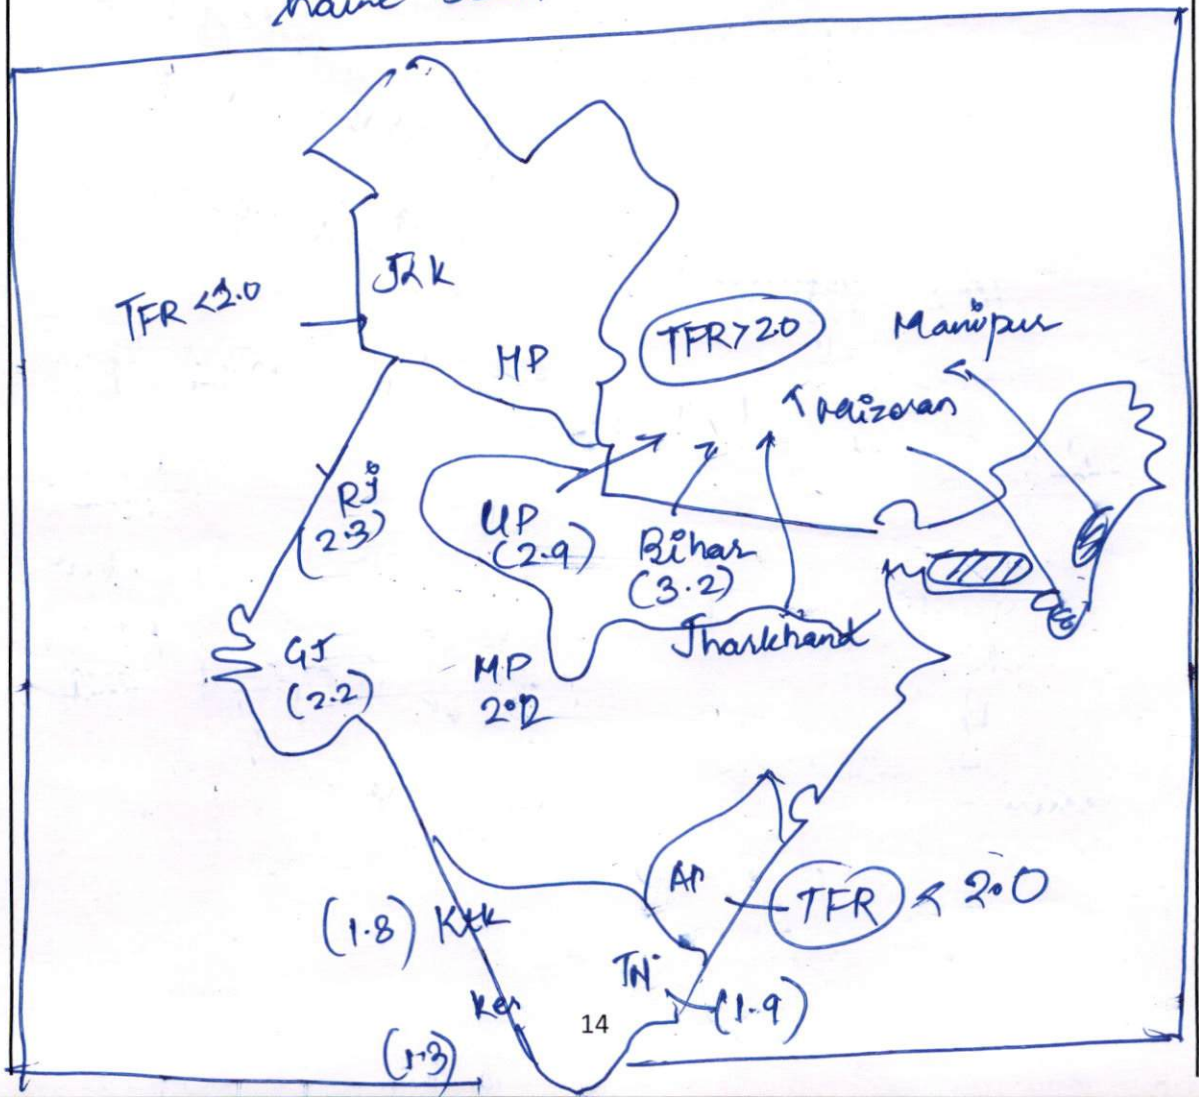 J&K
TFR < 2.0
HP
TFR > 2.0
Manipur
Mizoram
RJ
(2.3)
UP
(2.9)
Bihar
(3.2)
Jharkhand
GJ
(2.2)
MP
AP
TFR < 2.0
(1.8) Ktk
TN
(1.9)
Ker
14